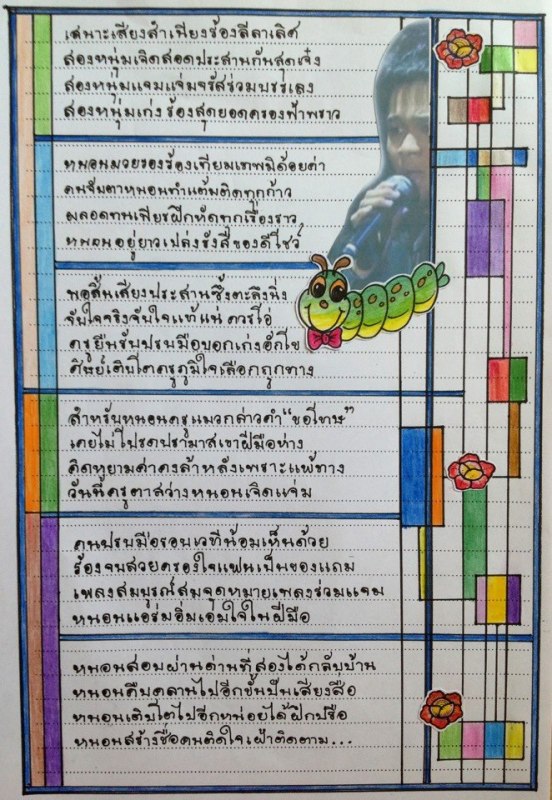 เสนาะเสียงสำเนียงร้องลีลาเลิศ
สองหนุ่มเจิดสอดประสานกันสุดเจ๋ง
สองหนุ่มแจมแจ่มจรัสร่วมบรรเลง
สองหนุ่มเก่งร้องสุดยอดครองฟ้าพราว
หนอนมวยรองร้องเทียมเทพมิด้อยค่า
คนจับตาหนอนทำแต้มติดทุกก้าว
ตลอดทนเพียรฝึกหัดทุกเรื่องราว
หนอนอยู่ยาวเปล่งรังสีของดีโชว์
พอสิ้นเสียงประสานซึ้งตะลึงนิ่ง
จับใจจริงจับใจแท้แน่ควรโอ่
ครูยืนรับปรบมือบอกเก่งอักโข
ศิษย์เติบโตครูภูมิใจเลือกถูกทาง
สำหรับหนอนครูแมวกล่าวคำ"ขอโทษ"
เคยไม่โปรดปรามาสเขาฝีมือห่าง
คิดหยามคำคงล้าหลังเพราะแพ้ทาง
วันนี้ครูตาสว่างหนอนเจิดแจ่ม
คนปรบมือรอบเวทีน้อมเห็นด้วย
ร้องจบสวยครองใจแฟนเป็นของแถม
เพลงสมบูรณ์สมจุดหมายเพลงร่วมแจม
หนอนแอร่มอิ่มเอมใจในฝีมือ
หนอนสอบผ่านด่านที่สองได้กลับบ้าน
หนอนคืบคลานไปอีกขั้นปั้นเสียงลือ
หนอนเติบโตไปอีกหน่อยได้ฝึกปรือ
หนอนสร้างชื่อคนติดใจเฝ้าติดตาม...